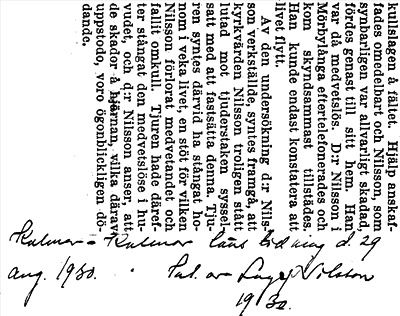 kullslagen å fältet. Hjälp anskaf-
fades omedelbart och Nilsson, som
synbarligen var allvarligt skadad,
fördes genast till sitt hem. Han
var då medvetslös. D:r Nilsson i
Mörbylånga eftertelefonerades och
kom skyndsammast tillstädes.
Han kunde endast konstatera att
livet flytt.
Av den undersökning d:r Nils-
son verkställde, syntes framgå, att
kyrkvärden Nilsson troligen stått
lutad mot tjuderstaken syssel-
satt med att fastsätta denna. Tju-
ren syntes därvid ha stångat ho-
nom i veka livet en stöt för vilken
Nilsson förlorat medvetandet och
fallit omkull. Tjuren hade däref-
ter stångat den medvetslöse i hu-
vudet, och d:r Nilsson anser, att
de skador å hjärnan, vilka därav
uppstodo, voro ögonblickligen dö-
dande.
Kalmar = Kalmar läns tidning d. 29
aug. 1930. Nilsson
1930.